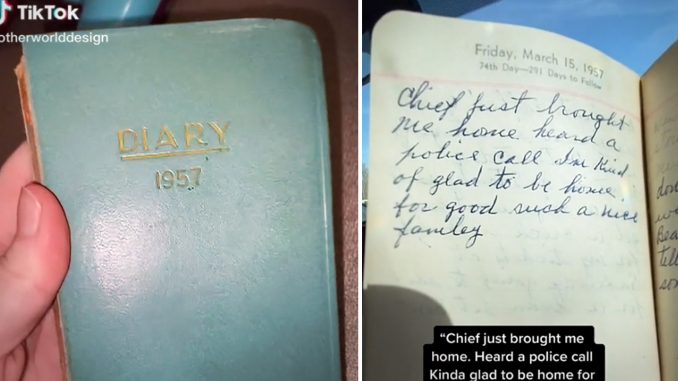 TikTok
otherworlddesign
DIARY
1957
Friday, March 15, 1957
74th Day—291 Days to Follow
Chief just brought
me home heard a
police call I'm kind
of glad to be home
for good such a nice
familey
don
we
Bea
tell
son
"Chief just brought me
home. Heard a police call
Kinda glad to be home for